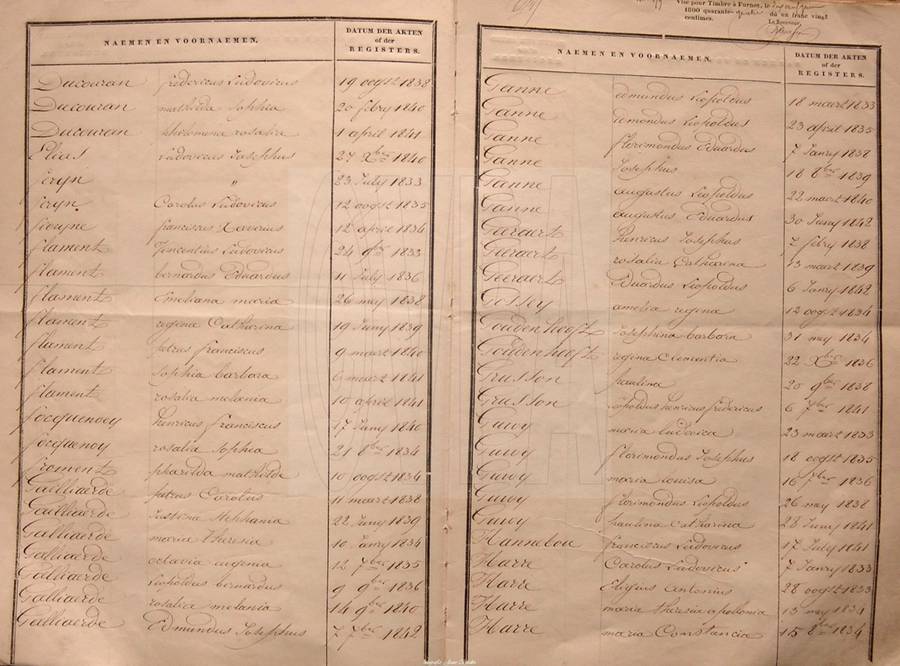 NAEMEN EN VOORNAEMEN.
DATUM DER AKTEN
of der
REGISTERS.
Ducouran fredericus Ludovicus 19 oogst 1838
Ducouran mathilda Sophia 20 febry 1840
Ducourein philomena rosalia 1 april 1841
Elias Ludovicus Josephus 27 Xbre 1840
feryn " 23 July 1833
feryn Carolus Ludovicus 12 oogst 1835
franciscus Xaverius 12 april 1834
flament Vincentius Ludovicus 24 9bre 1833
flament bernardus Eduardus 11 July 1836
flament Emeliana maria 26 mey 1838
flament regina Catharina 19 Juny 1839
flament petrus franciscus 9 maert 1840
flament Sophia barbara 6 maert 1841
flament rosalia melania 10 april 1841
focquenoey henricus franciscus 17 Juny 1840
focquenoy rosalia Sophia 21 8bre 1834
froment pharilda mathilde 10 oogst 1834
Galliaerde petrus Carolus 11 maert 1838
Galliaerde Justina Stephania 22 Juny 1839
Galliaerde maria theresia 10 Janry 1834
Galliaerde octavia eugenia 12 7bre 1835
Galliaerde Leopoldus bernardus 9 9bre 1836
Galliaerde rosalia melania 14 9bre 1840
Galliaerde Edmundus Josephus 7 7bre 1842
Vise pour Timbre à Furnes, le
1800 quarante-quatre du un franc vingt
centimes. Le Receveur,
NAEMEN EN VOORNAEMEN.
DATUM DER AKTEN
of der
REGISTERS.
Ganne edmundus Leopoldus 18 maert 1833
Ganne edmondus Leopoldus 23 april 1835
Ganne florimondus Eduardus 7 Janry 1838
Ganne Josephus 18 8bre 1839
Ganne augustus Leopoldus 22 maert 1840
Ganne augustus Eduardus 30 Juny 1842
Geraert henricus Josephus 7 febry 1838
Geeraert rosalia Catharina 13 maert 1839
Geeraert Eduardus Leopoldus 6 Janry 1842
Gossey amelia regina 12 oogst 1834
Goudenhooft Josephina barbara 31 mey 1834
Goudenhooft regina Clementia 22 Xbre 1836
Grusson paulina 20 9bre 1838
Grusson Leopoldus henricus fredericus 6 7bre 1841
Guwy maria Ludovica 23 maert 1833
Guwy florimondus Josephus 18 oogst 1835
Guwoy maria Louisa 16 7bre 1836
Guwoy florimondus Leopoldus 26 mey 1838
Guwy paulina Catharina 28 Juny 1841
Hannebou franciscus Ludovicus 17 July 1841
Harre Carolus Ludovicus 7 Janry 1833
Harre Eligius antonius 28 oogst 1833
Harre maria theresia apolonia 13 mey 1834
Harre maria Constancia 15 8bre 1834